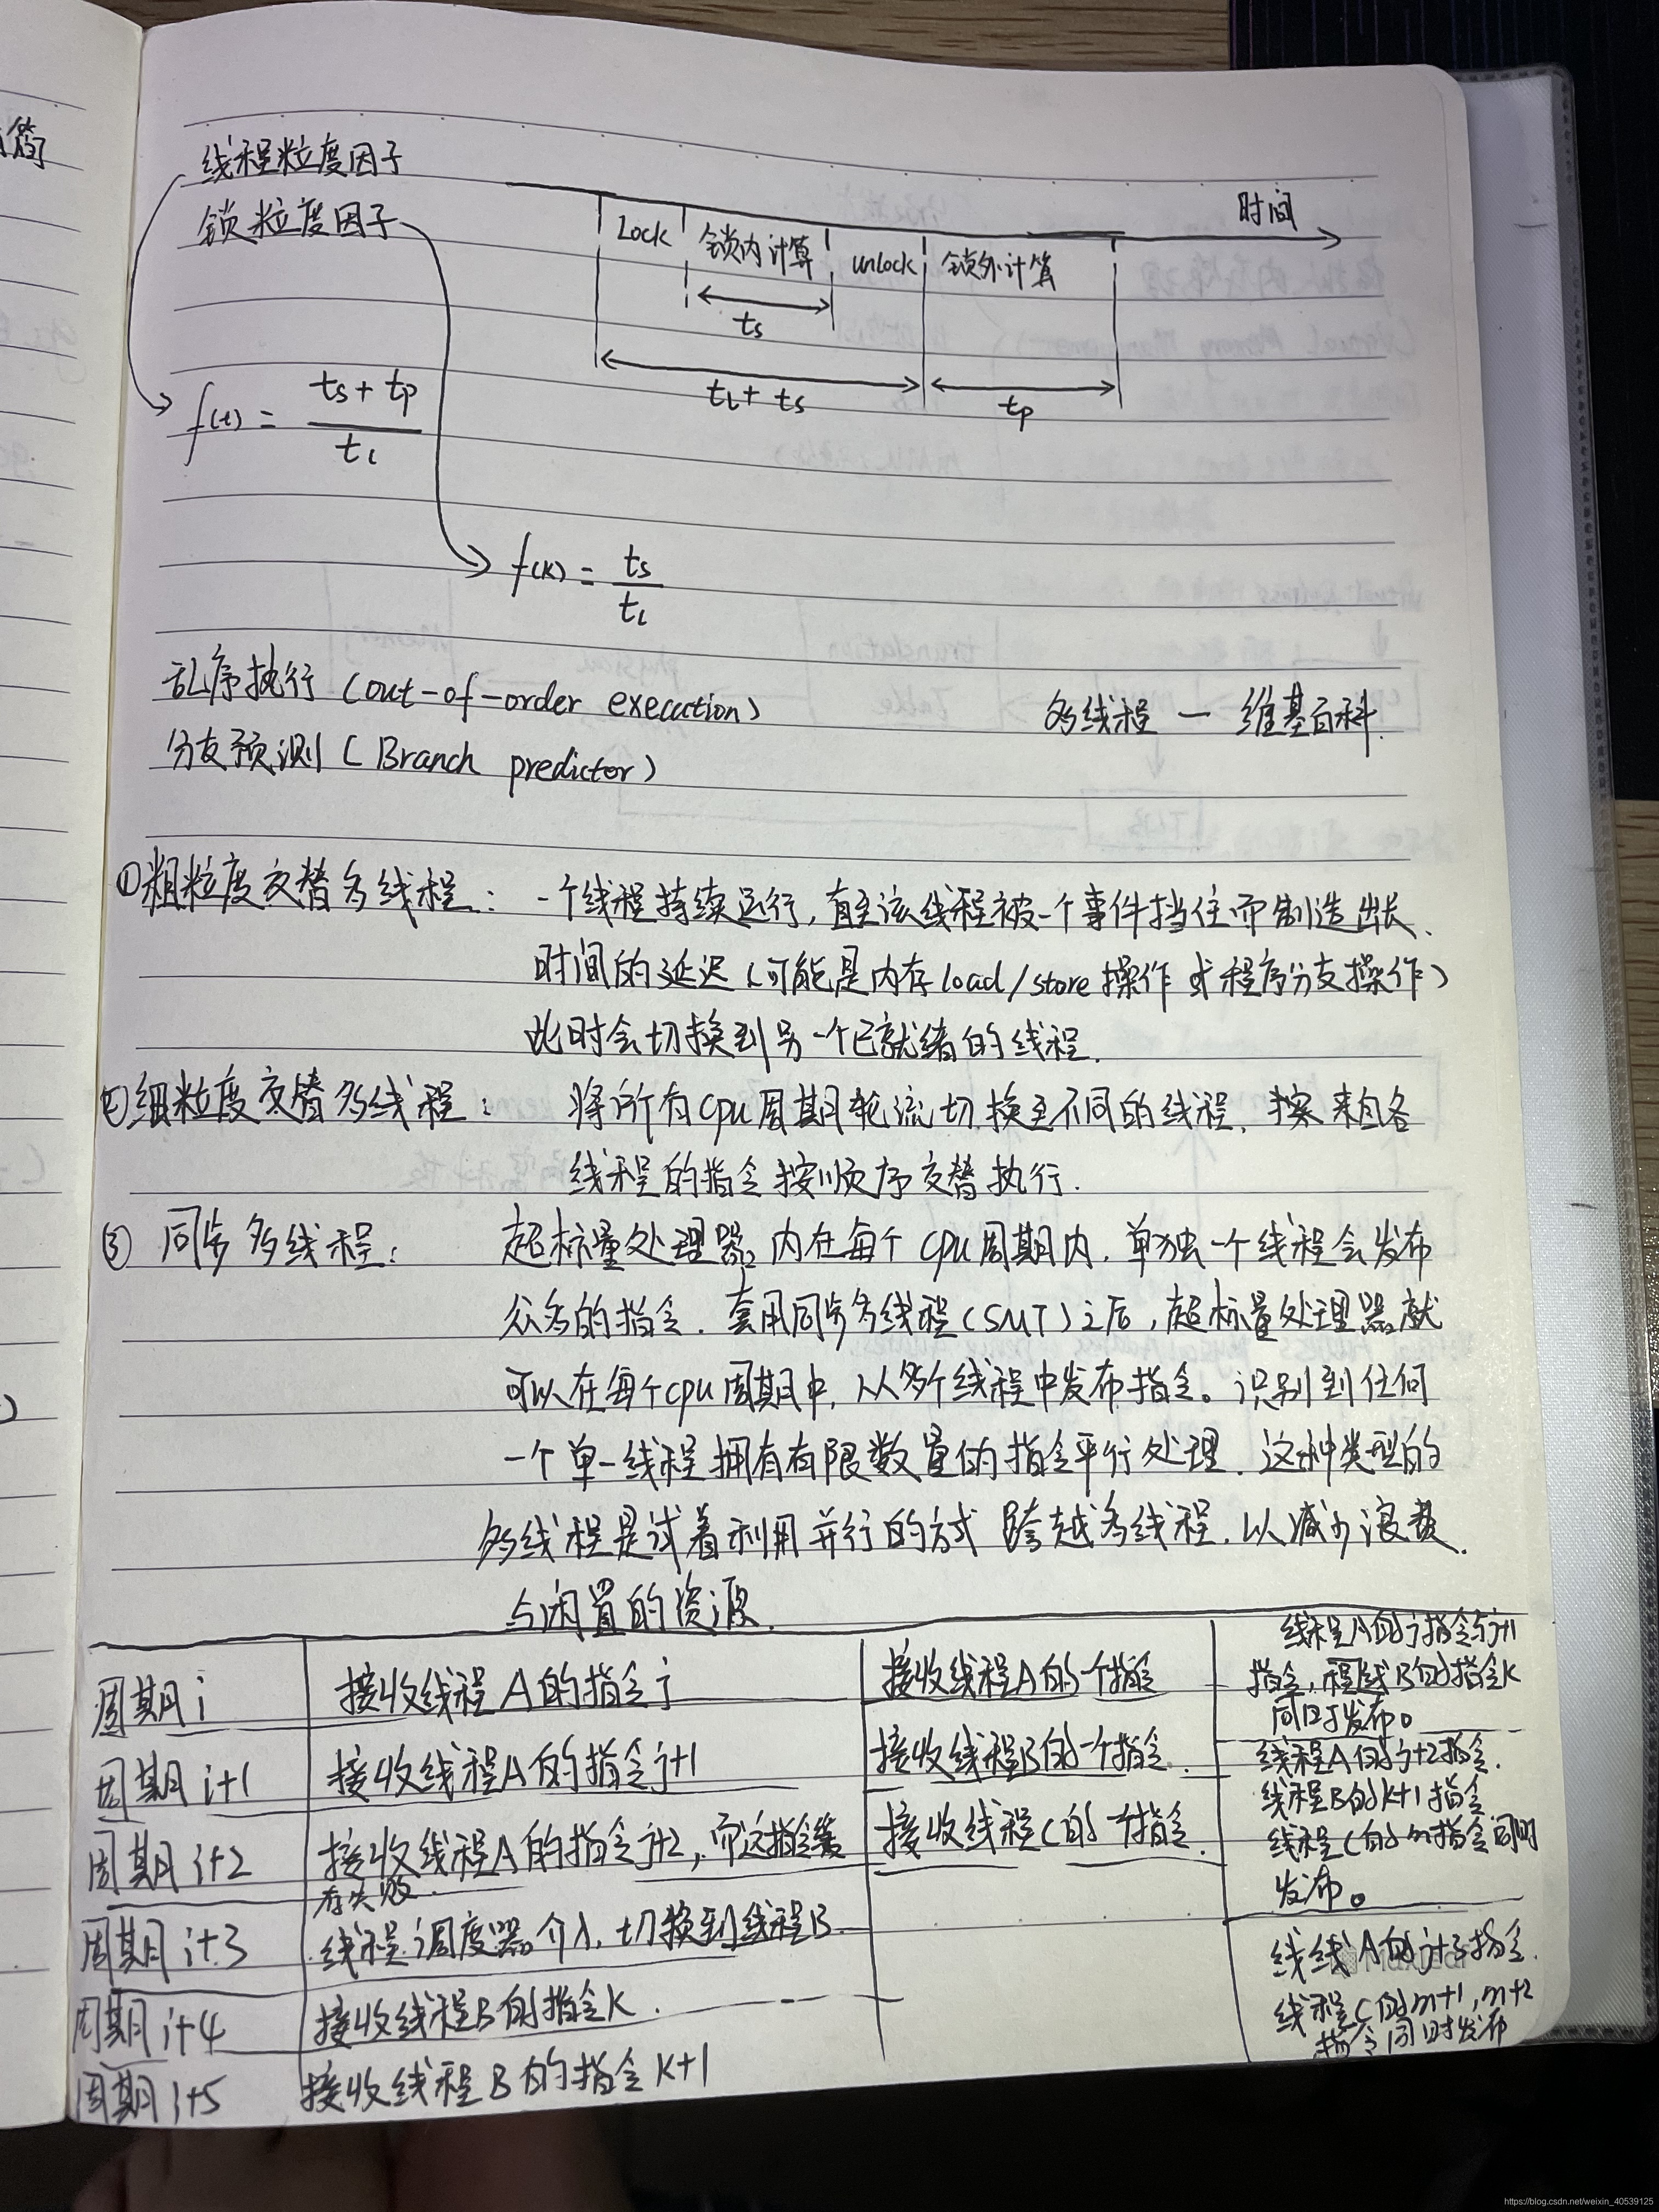 简
线程粒度因子
锁粒度因子
时间
Lock 锁内计算 unlock 锁外计算
ts
tL + ts tp
f(t) = ts + tp / tL
f(k) = ts / tL
乱序执行 (out-of-order execution)
多线程 — 维基百科.
分支预测 ( Branch predictor )
①粗粒度交替多线程: 一个线程持续运行, 直至该线程被一个事件挡住而制造出长
时间的延迟 (可能是内存load/store操作 或 程序分支操作)
此时会切换到另一个已就绪的线程.
②细粒度交替多线程: 将所有cpu周期轮流切换至不同的线程, 来自各
线程的指令按顺序交替执行.
③ 同步多线程: 超标量处理器内在每个cpu周期内, 单独一个线程会发布
众多的指令. 套用同步多线程(SMT)之后, 超标量处理器就
可以在每个cpu周期中, 从多个线程中发布指令。识别到任何
一个单一线程拥有有限数量的指令平行处理. 这种类型的
多线程是试着利用并行的方式 跨越多线程, 以减少浪费
与闲置的资源.
周期 i 接收线程A的指令 j 接收线程A的一个指令 线程A的 j 指令与 j+1
指令, 程线B的指令K
同时发布。
周期 i+1 接收线程A的指令 j+1 接收线程B的一个指令. 线程A的 j+2 指令.
线程B的 k+1 指令
周期 i+2 接收线程A的指令 j+2, 而这指令缓 接收线程C的一个指令. 线程C的 m 指令同时
存失败. 发布。
周期 i+3 线程调度器介入, 切换到线程B. 线线A的 j+3 指令.
周期 i+4 接收线程B的指令K. 线程C的 m+1, m+2
指令同时发布
周期 i+5 接收线程B的指令 K+1
https://blog.csdn.net/weixin_40539125